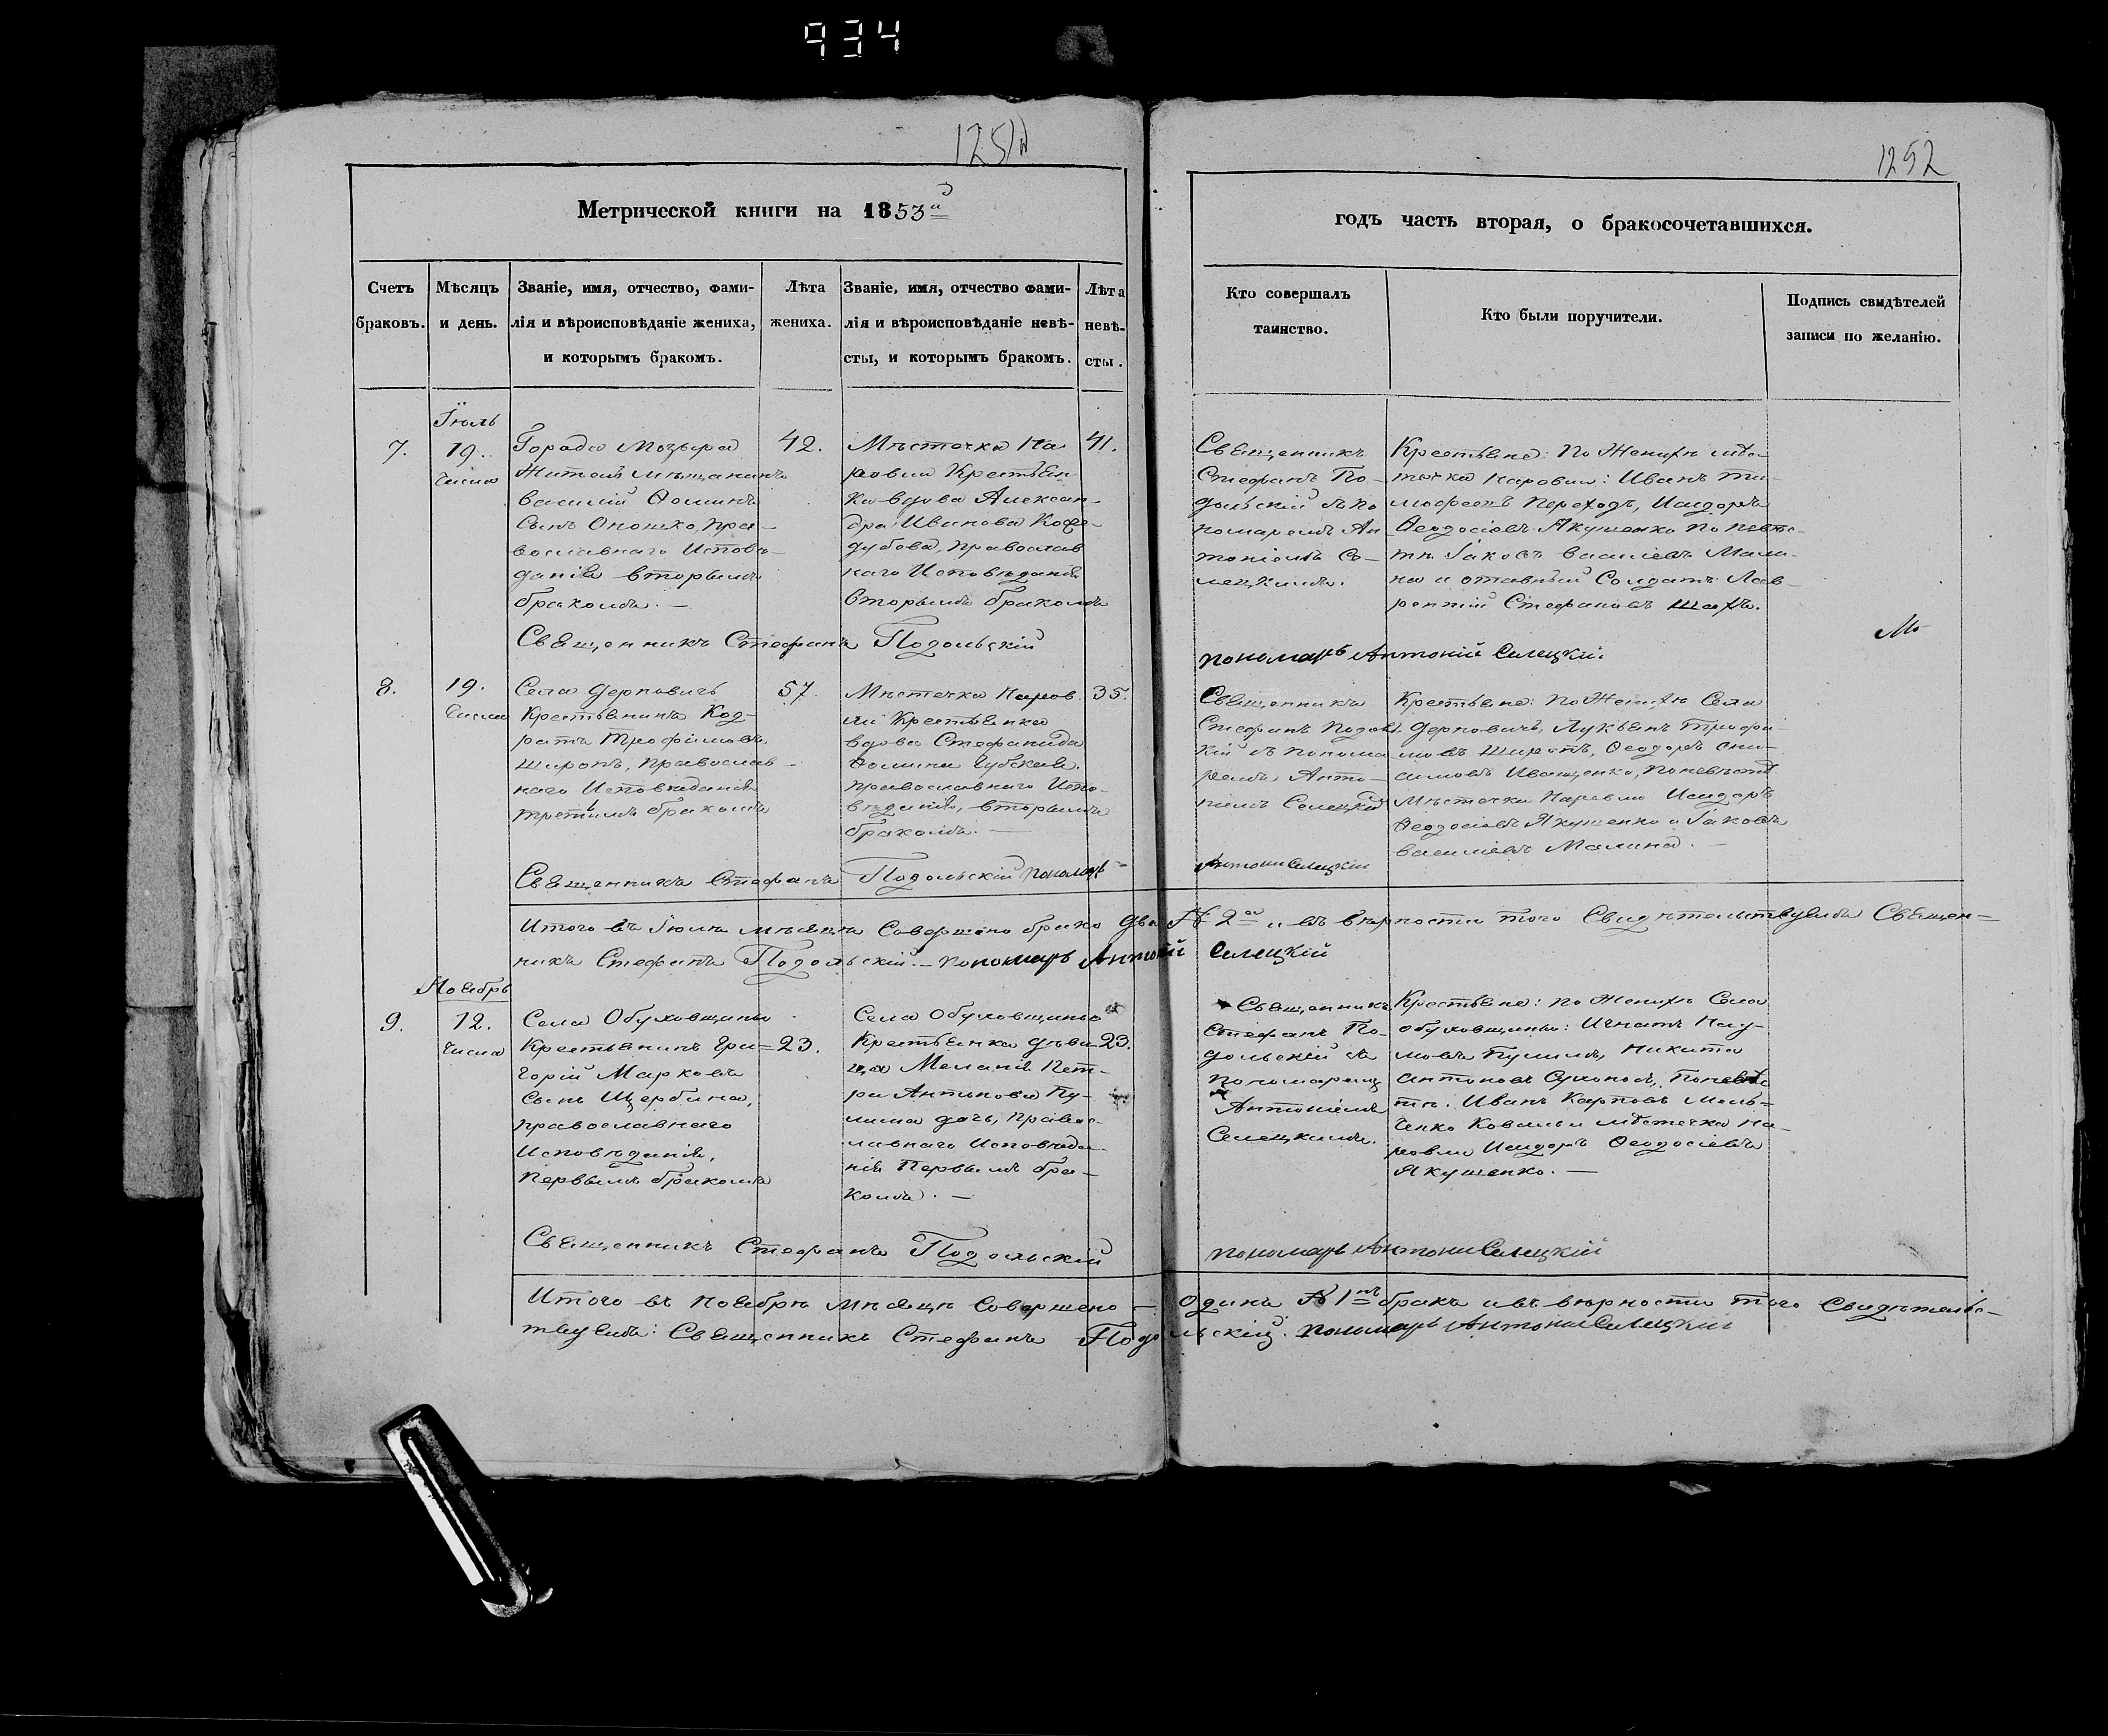 934
1251
1252
Метрической книги на 1853й
годъ часть вторая, о бракосочетавшихся.
Счетъ браковъ.
Мѣсяцъ и день.
Званіе, имя, отчество, фами-
лія и вѣроисповѣданіе жениха,
и которымъ бракомъ.
Лѣта
жениха.
Званіе, имя, отчество фами-
лія и вѣроисповѣданіе невѣ-
сты, и которымъ бракомъ.
Лѣта
невѣ-
сты.
Кто совершалъ
таинство.
Кто были поручители.
Подпись свидѣтелей
записи по желанію.
Іюль
7.
19.
числа
Города Мозыра
Житель мѣщанинъ
Василій Ѳоминъ
Сынъ Оношко, пра-
вославнаго Исповѣ-
данія вторымъ
бракомъ. —
42.
Мѣстечка На
ровли Крестьян
ка вдова Алексан-
дра Иванова
православ
наго Исповѣданія
вторымъ бракомъ
41.
Священникъ
Стефанъ По-
дольскій съ по
номаремъ Ан
тоніемъ Се-
лецкимъ.
Крестьяне: По Женихѣ мѣс-
течка Наровли: Иванъ Ти-
мофеевъ Переходъ, Исидоръ
Ѳеодосіевъ Якушенко по невѣс-
тѣ Іаковъ Василіевъ Мали-
на и отставный Солдатъ Лав-
рентій Стефановъ Шахъ.
Священникъ Стефанъ Подольскій
пономарь Антоній Селецкій
8.
19.
числа
Села Дерновичъ
Крестьянинъ Код-
ратъ Трофимовъ
Широтъ, православ-
наго Исповѣданія
третьимъ бракомъ
57.
Мѣстечка Наров
ли Крестьянка
вдова Стефанида
Ѳомина Губская,
православнаго Испо-
вѣданія, вторымъ
бракомъ. —
35.
Священникъ
Стефанъ Подоль
кій съ понома
ремъ Анто-
ніемъ Селецкимъ
Крестьяне: По Женихѣ Села
Дерновичъ, Лукьянъ Трофи-
мовъ Широтъ, Ѳеодоръ Они-
симовъ Иващенко, по невѣстѣ
Мѣстечка Наровли Исидоръ
Ѳеодосіевъ Якушенко и Іаковъ
Василіевъ Малина. —
Священникъ Стефанъ Подольскій пономарь
Антоній Селецкій
Итого въ Іюлѣ мѣсяцѣ Совершено брака два № 2а и въ вѣрности того Свидѣтельствуемъ Священ=
никъ Стефанъ Подольскій. — пономарь Антоній Селецкій
Ноябрь
9.
12.
числа
Села Обуховщины
Крестьянинъ Гри=
горій Марковъ
Сынъ Щербина,
православнаго
Исповѣданія,
первымъ бракомъ
23.
Села Обуховщины
Крестьянка дѣви
ца Меланія Пет-
ра Антонова Пу-
лима дочь, правос-
лавнаго Исповѣда-
нія Первымъ бра-
комъ. —
23.
Священникъ
Стефанъ По-
дольскій съ
пономаремъ
Антоніемъ
Селецкимъ.
Крестьяне: по Женихѣ Села
Обуховщины: Игнатъ Нау-
мовъ Пулимъ, Никита
Антоновъ Сухоносъ, по невѣс
тѣ. Иванъ Карповъ Мель=
ченко Коваль и мѣстечка На-
ровли Исидоръ Ѳеодосіевъ
Якушенко. —
Священникъ Стефанъ Подольскій
пономарь Антоній Селецкій
Итого въ Ноябрѣ мѣсяцѣ Совершено — одинъ № 1нъ бракъ и въ вѣрности того Свидѣтельс-
твуемъ: Священникъ Стефанъ Подольскій. пономарь Антоній Селецкій